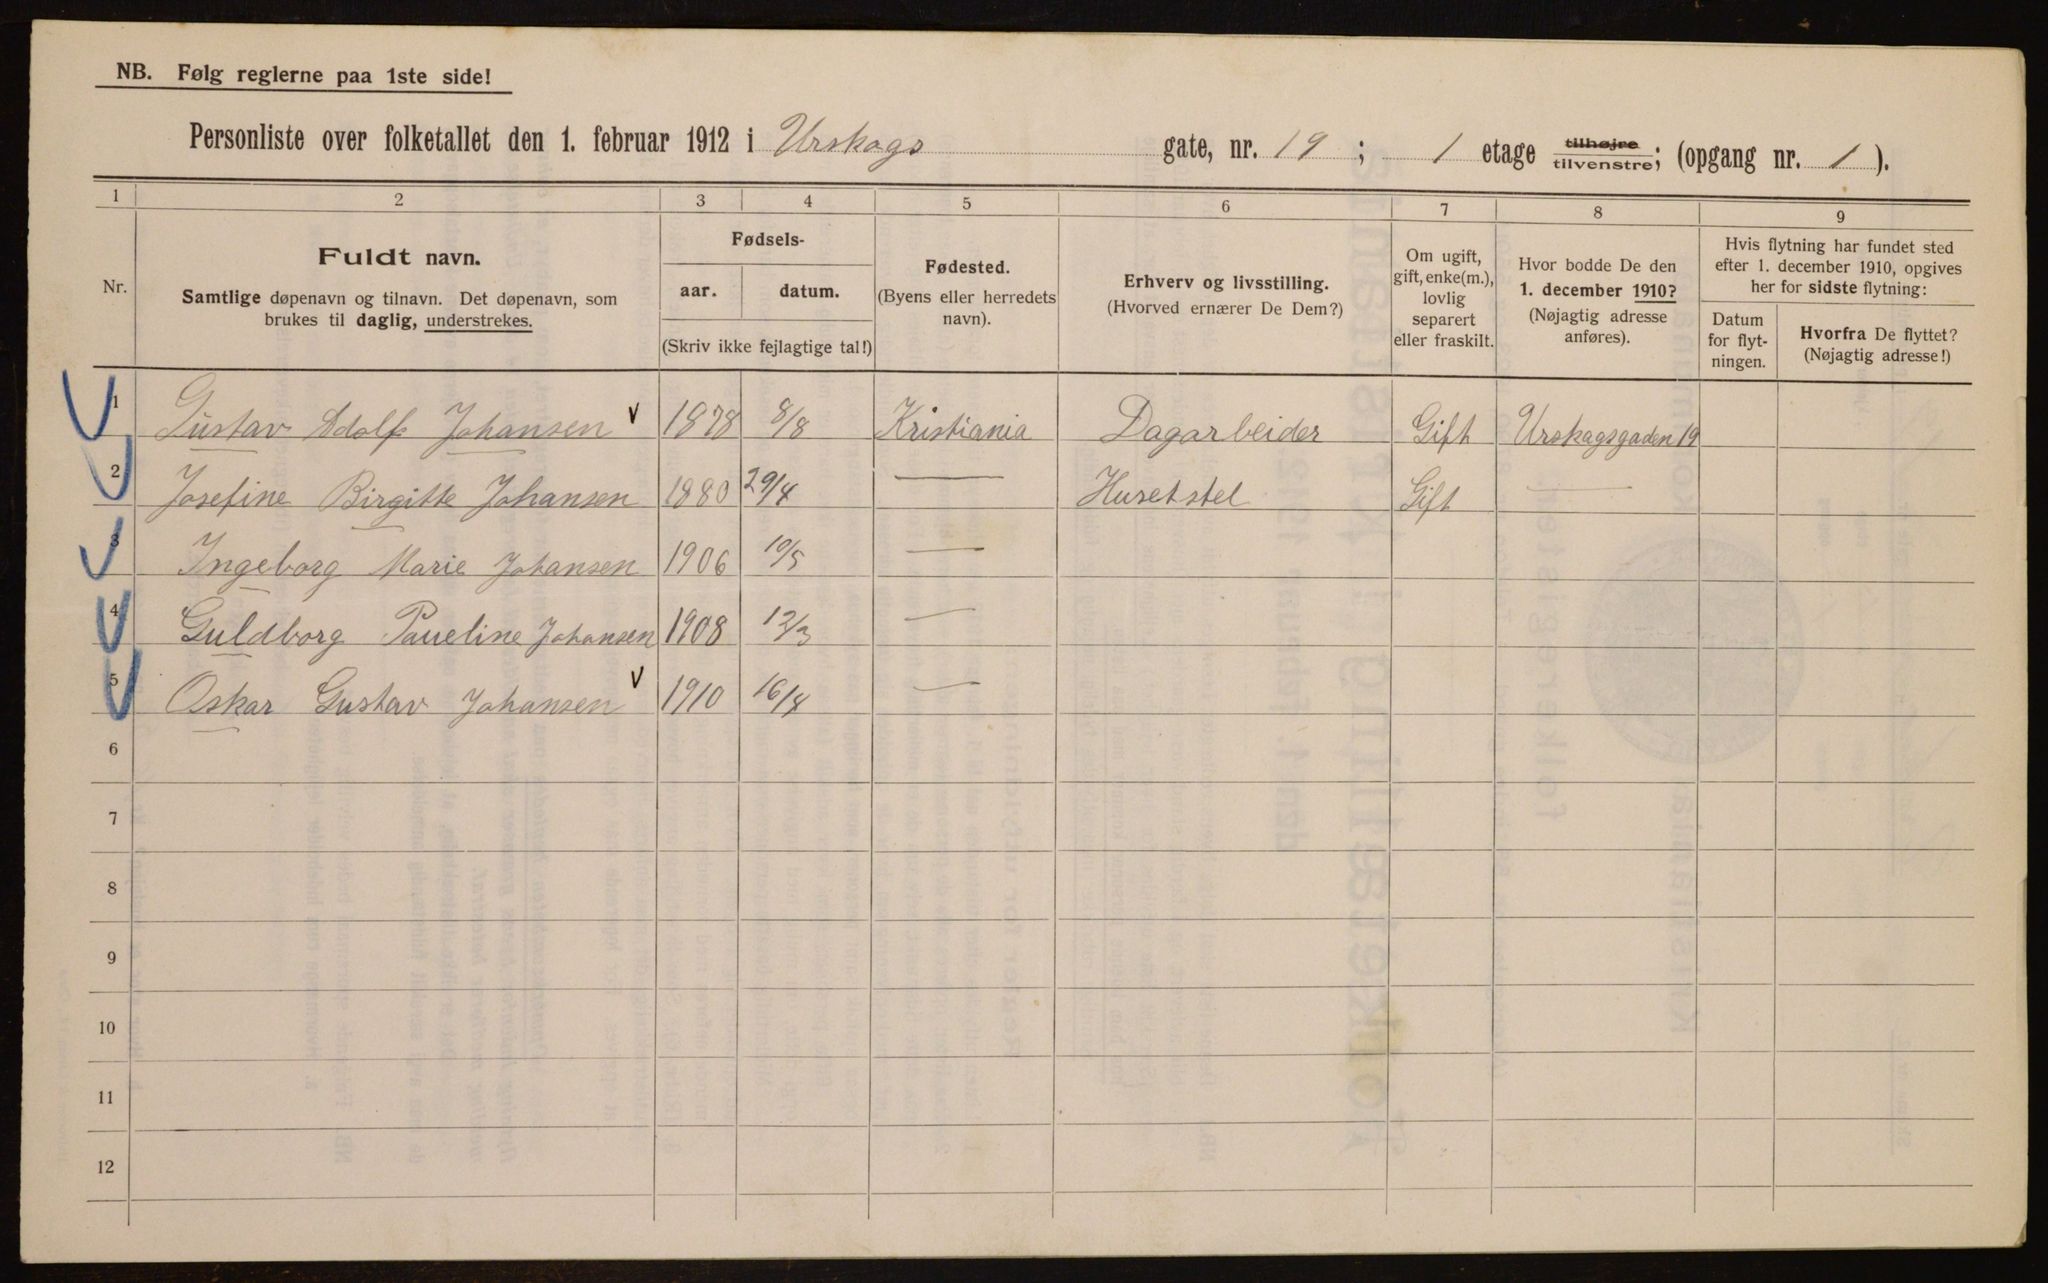 NB. Følg reglerne paa 1ste side!
Personliste over folketallet den 1. februar 1912 i Urskogs gate, nr. 19 ; 1 etage tilhøjre tilvenstre; (opgang nr. 1 ).
1 2 3 4 5 6 7 8 9
Nr.
Fuldt navn.
Samtlige døpenavn og tilnavn. Det døpenavn, som
brukes til daglig, understrekes.
Fødsels-
aar. datum.
(Skriv ikke fejlagtige tal!)
Fødested.
(Byens eller herredets
navn).
Erhverv og livsstilling.
(Hvorved ernærer De Dem?)
Om ugift,
gift, enke(m.),
lovlig
separert
eller fraskilt.
Hvor bodde De den
1. december 1910?
(Nøjagtig adresse
anføres).
Hvis flytning har fundet sted
efter 1. december 1910, opgives
her for sidste flytning:
Datum
for flyt-
ningen.
Hvorfra De flyttet?
(Nøjagtig adresse!)
1 Gustav Adolf Johansen v 1878 8/8 Kristiania Dagarbeider Gift Urskogsgaden 19
2 Josefine Birgitte Johansen 1880 29/4 — Husetstel Gift —
3 Ingeborg Marie Johansen 1906 10/5 —
4 Guldborg Paueline Johansen 1908 12/3 —
5 Oskar Gustav Johansen v 1910 16/4 —
6
7
8
9
10
11
12